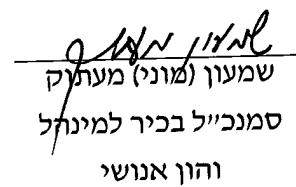 שמעון מעתוק
שמעון (מוני) מעתוק
סמנכ״ל בכיר למינהל
והון אנושי